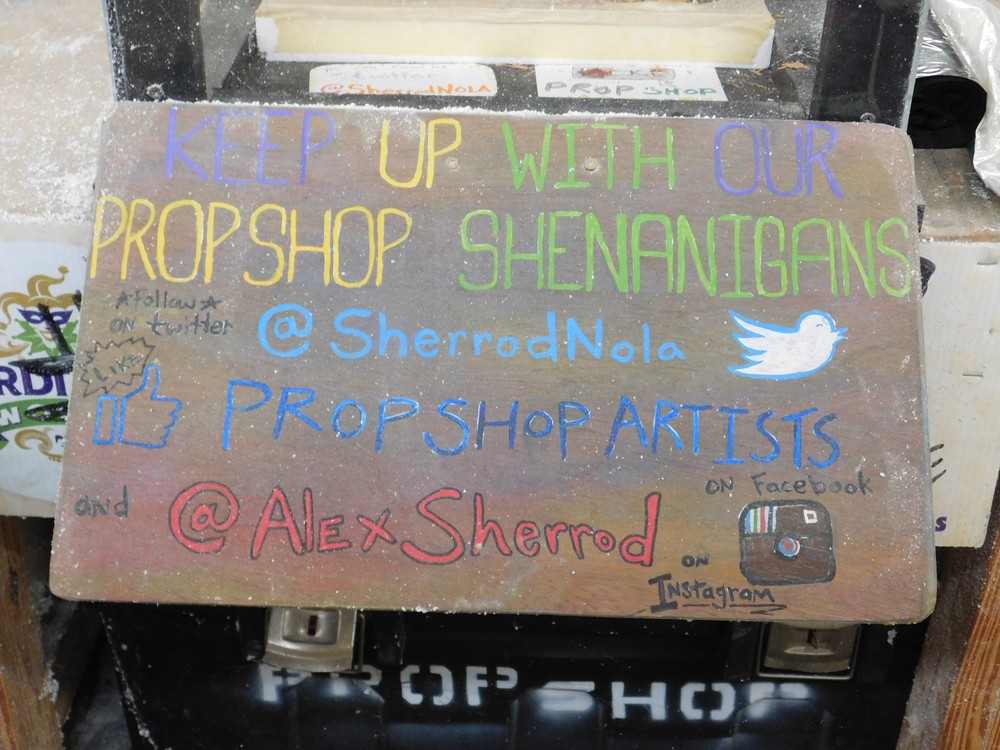 twitter
@SherrodNOLA
PROP SHOP
KEEP UP WITH OUR
PROPSHOP SHENANIGANS
Follow
ON twitter
@SherrodNola
LIKE
PROPSHOPARTISTS
ON Facebook
and @AlexSherrod
ON
Instagram
PROP SHOP